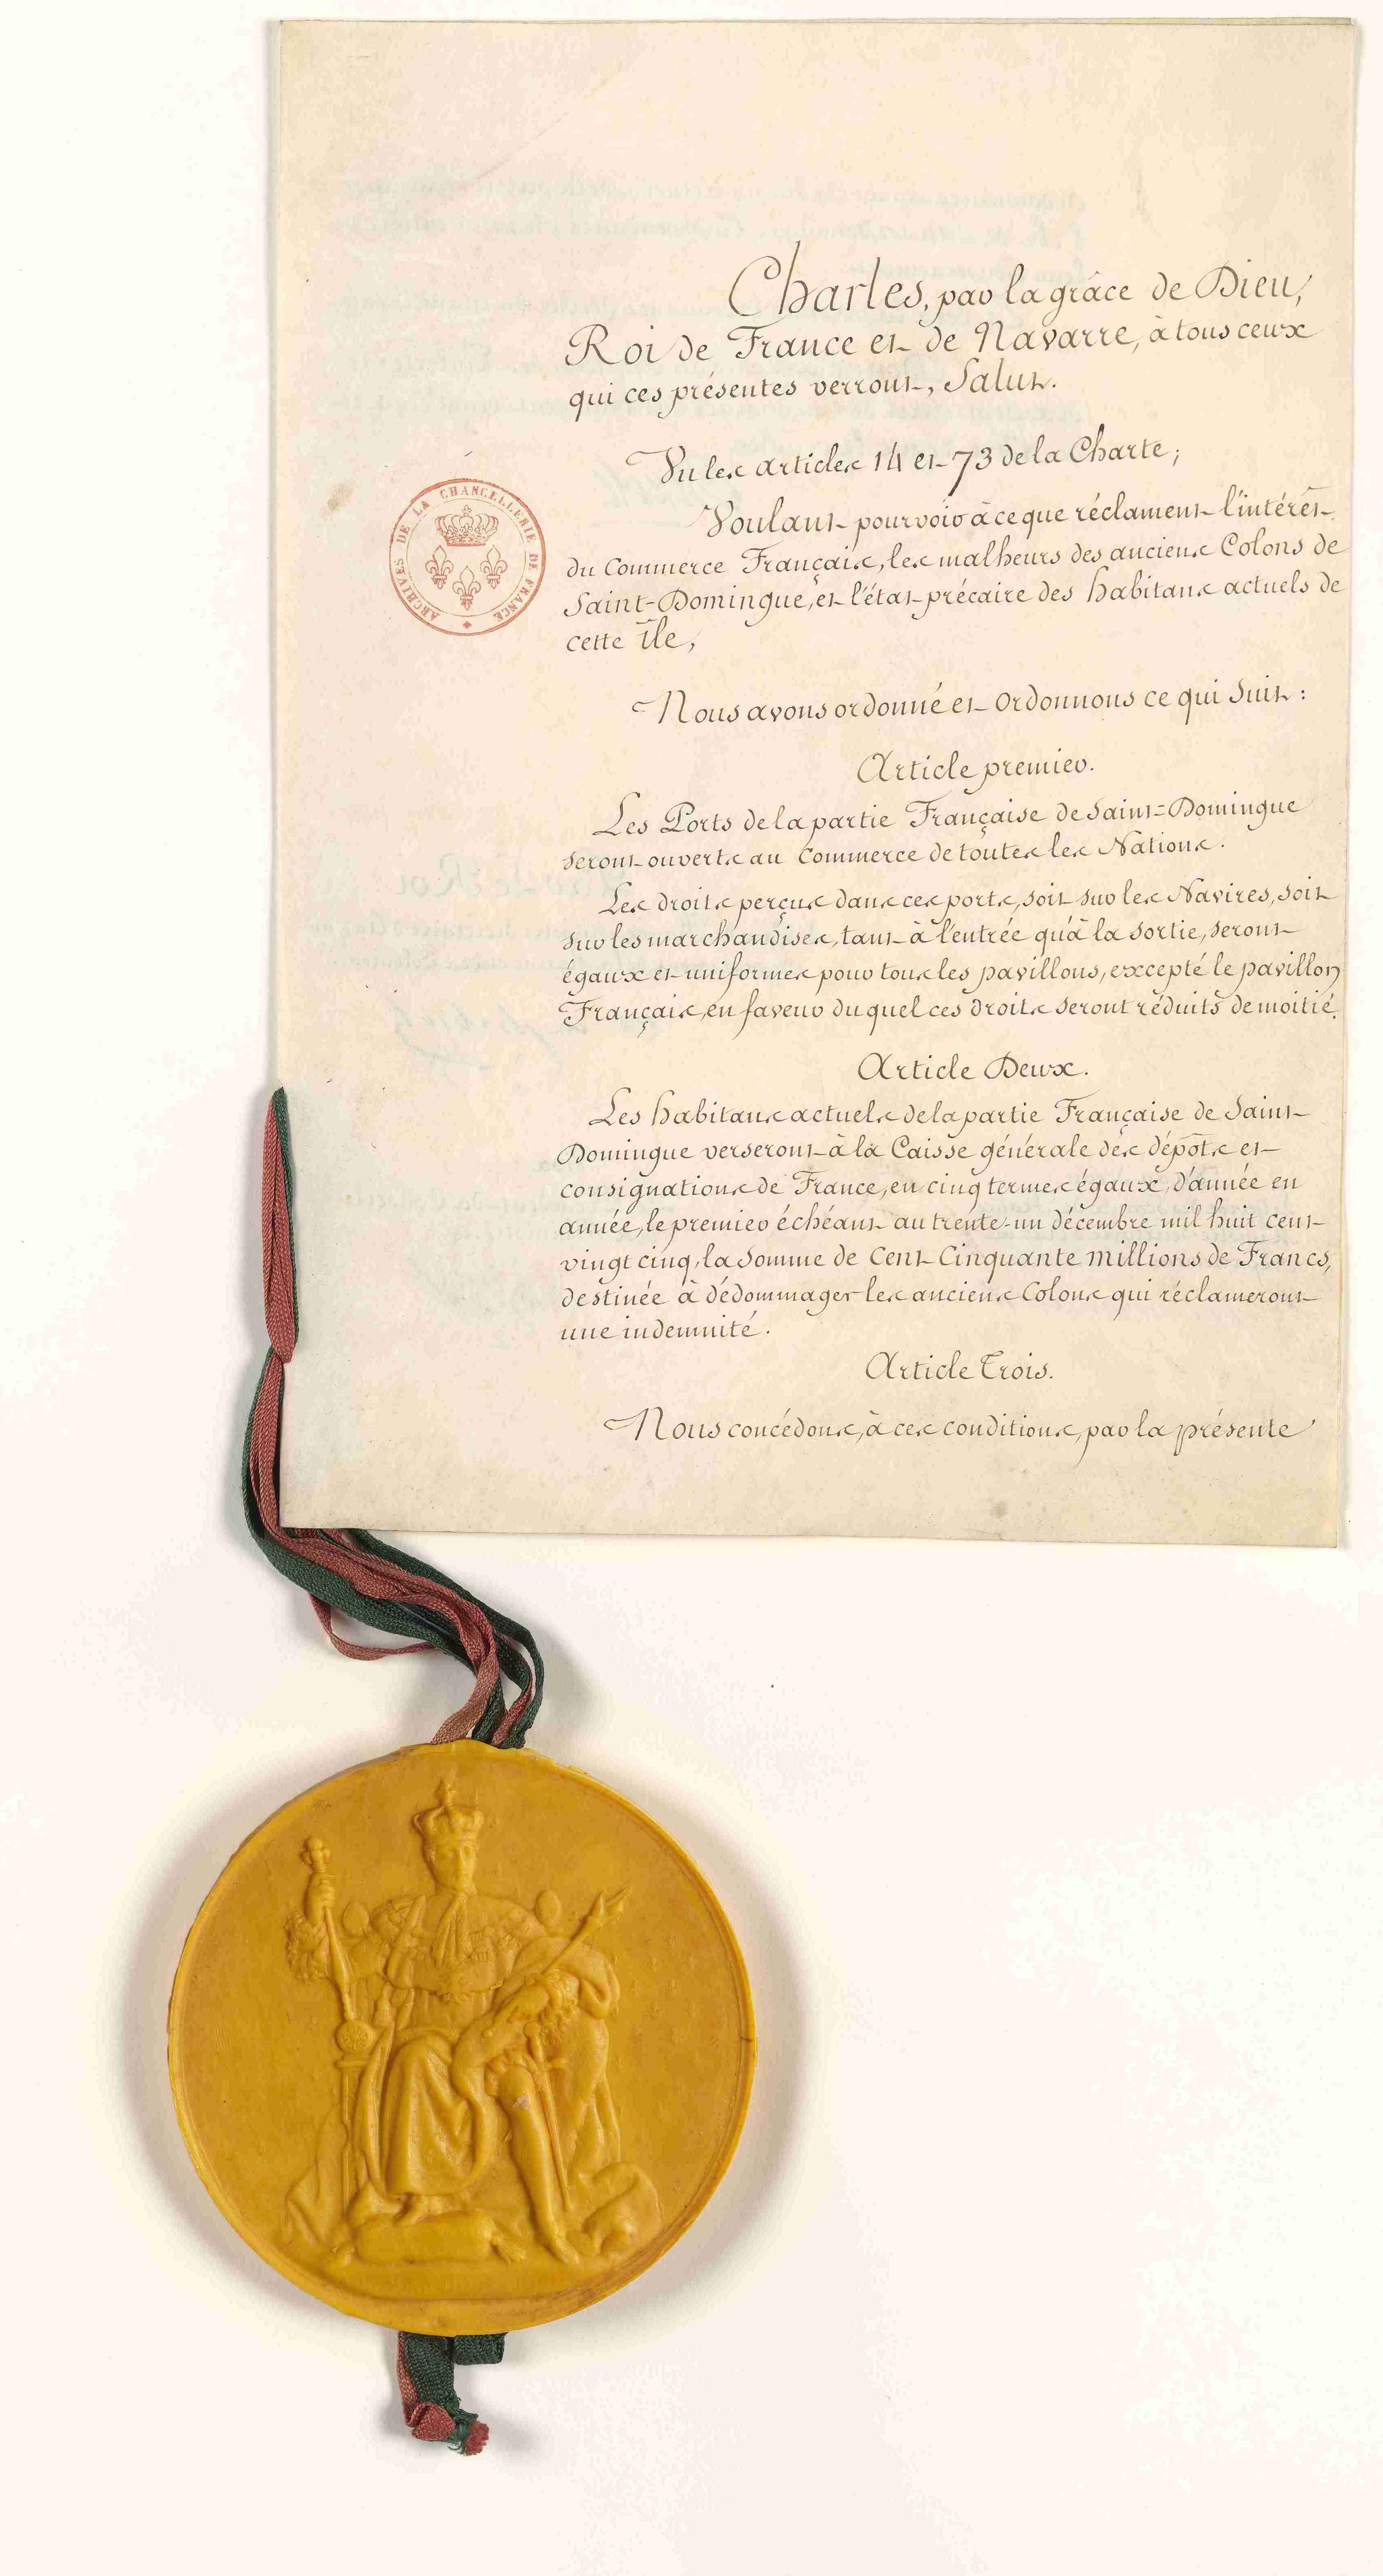 Charles, par la grâce de Dieu,
Roi de France et de Navarre, à tous ceux
qui ces présentes verront, Salut.
Vu les articles 14 et 73 de la Charte;
Voulant pourvoir à ce que réclament l'intérêt
du Commerce Français, les malheurs des anciens Colons de
Saint-Domingue, et l'état précaire des habitans actuels de
cette Île,
ARCHIVES DE LA CHANCELLERIE DE FRANCE
Nous avons ordonné et ordonnons ce qui suit :
Article premier.
Les Ports de la partie Française de Saint-Domingue
seront ouverts au Commerce de toutes les Nations.
Les droits perçus dans ces ports, soit sur les Navires, soit
sur les marchandises, tant à l'entrée qu'à la sortie, seront
égaux et uniformes pour tous les pavillons, excepté le pavillon
Français, en faveur duquel ces droits seront réduits de moitié.
Article Deux.
Les habitans actuels de la partie Française de Saint-
Domingue verseront à la Caisse générale des dépôts et
consignations de France, en cinq termes égaux, d'année en
année, le premier échéant au trente-un décembre mil huit cent
vingt cinq, la somme de Cent Cinquante millions de Francs,
destinée à dédommager les anciens Colons qui réclameront
une indemnité.
Article Trois.
Nous concédons, à ces conditions, par la présente